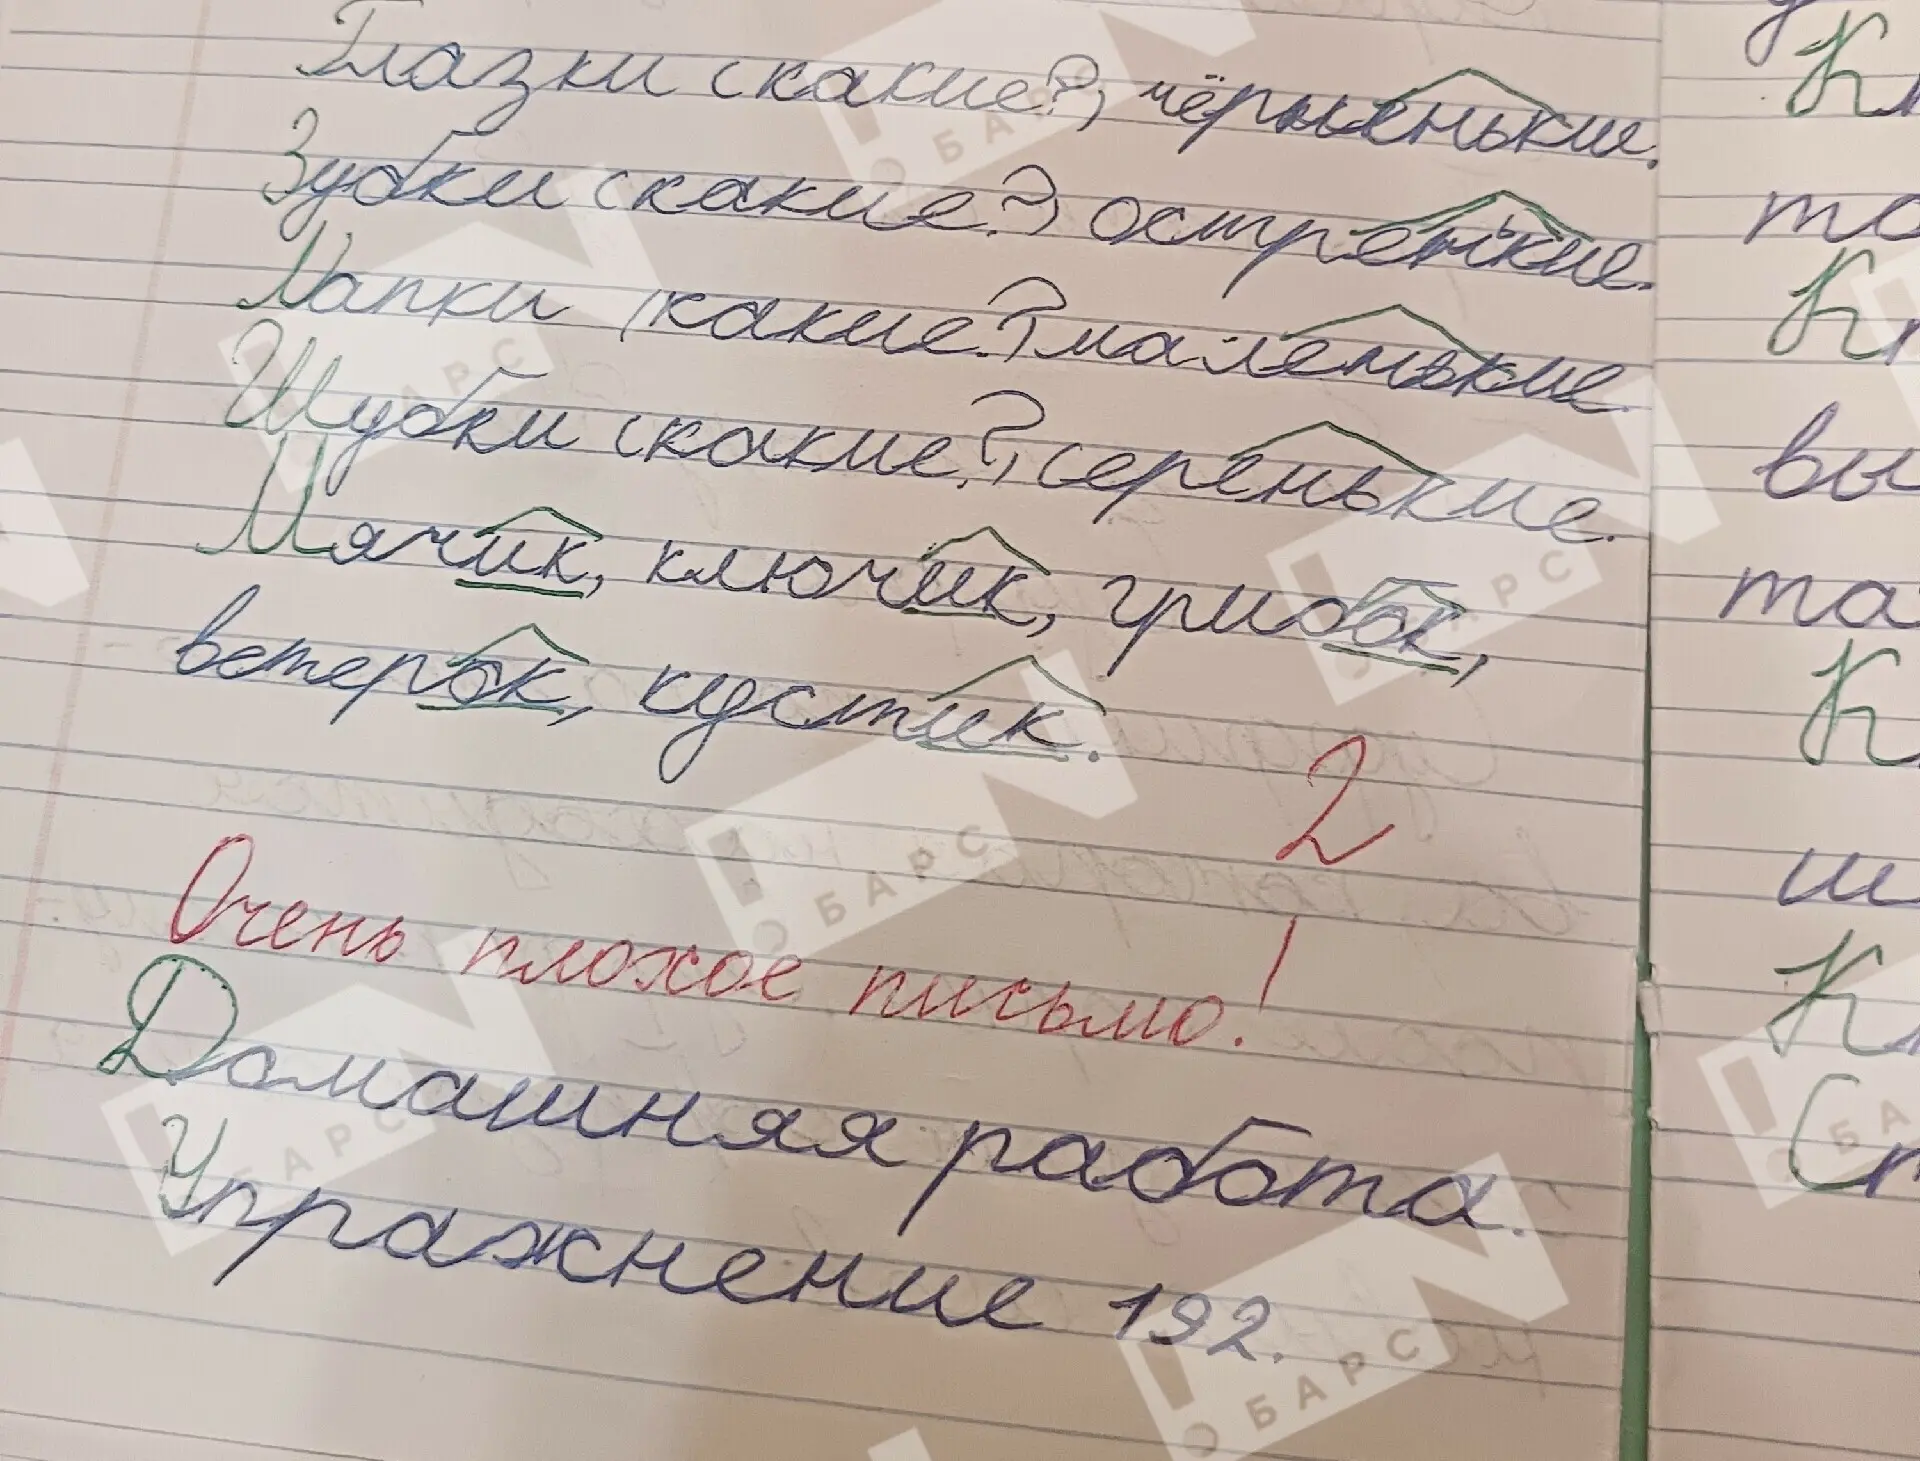 Глазки (какие?) чёрненькие.
Зубки (какие?) остренькие.
Лапки (какие?) маленькие
Шубки (какие?) серенькие.
Мячик, ключик, грибок,
ветерок, кустик.
2
Очень плохое письмо!
Домашняя работа.
Упражнение 192.